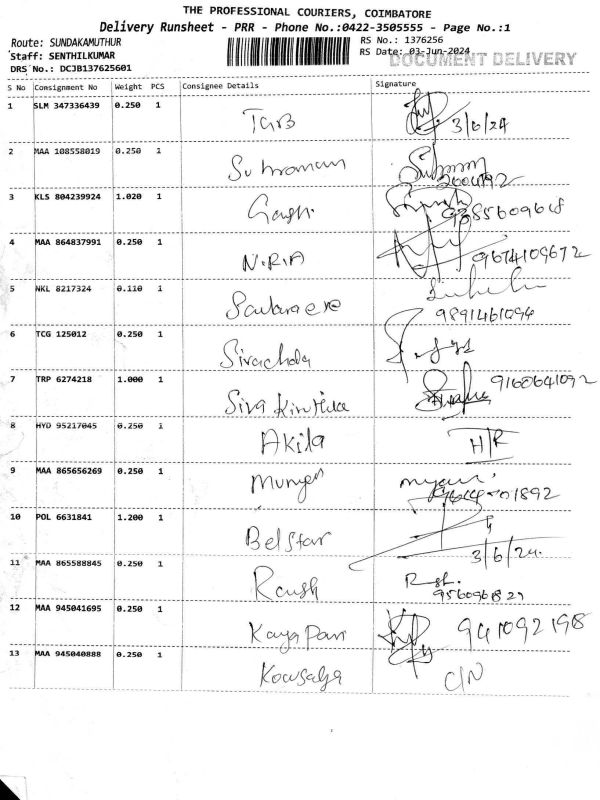 THE PROFESSIONAL COURIERS, COIMBATORE
Delivery Runsheet - PRR - Phone No.:0422-3505555 - Page No.:1
Route: SUNDAKAMUTHUR
RS No.: 1376256
Staff: SENTHILKUMAR
RS Date: 03-Jun-2024
DOCUMENT DELIVERY
DRS No.: DCJB137625601
S No Consignment No Weight PCS Consignee Details Signature
1 SLM 347336439 0.250 1 TGB 3/6/24
2 MAA 108558019 0.250 1
3 KLS 804239924 1.020 1
4 MAA 864837991 0.250 1 N.R.A 9674109672
5 NKL 8217324 0.110 1
9891461094
6 TCG 125012 0.250 1
7 TRP 6274218 1.000 1 Siva
8 HYD 95217045 0.250 1 Akila H/R
9 MAA 865656269 0.250 1
10 POL 6631841 1.200 1 Belstar
3/6/24.
11 MAA 865588845 0.250 1
12 MAA 945041695 0.250 1
13 MAA 945040888 0.250 1 Kousalya C/N